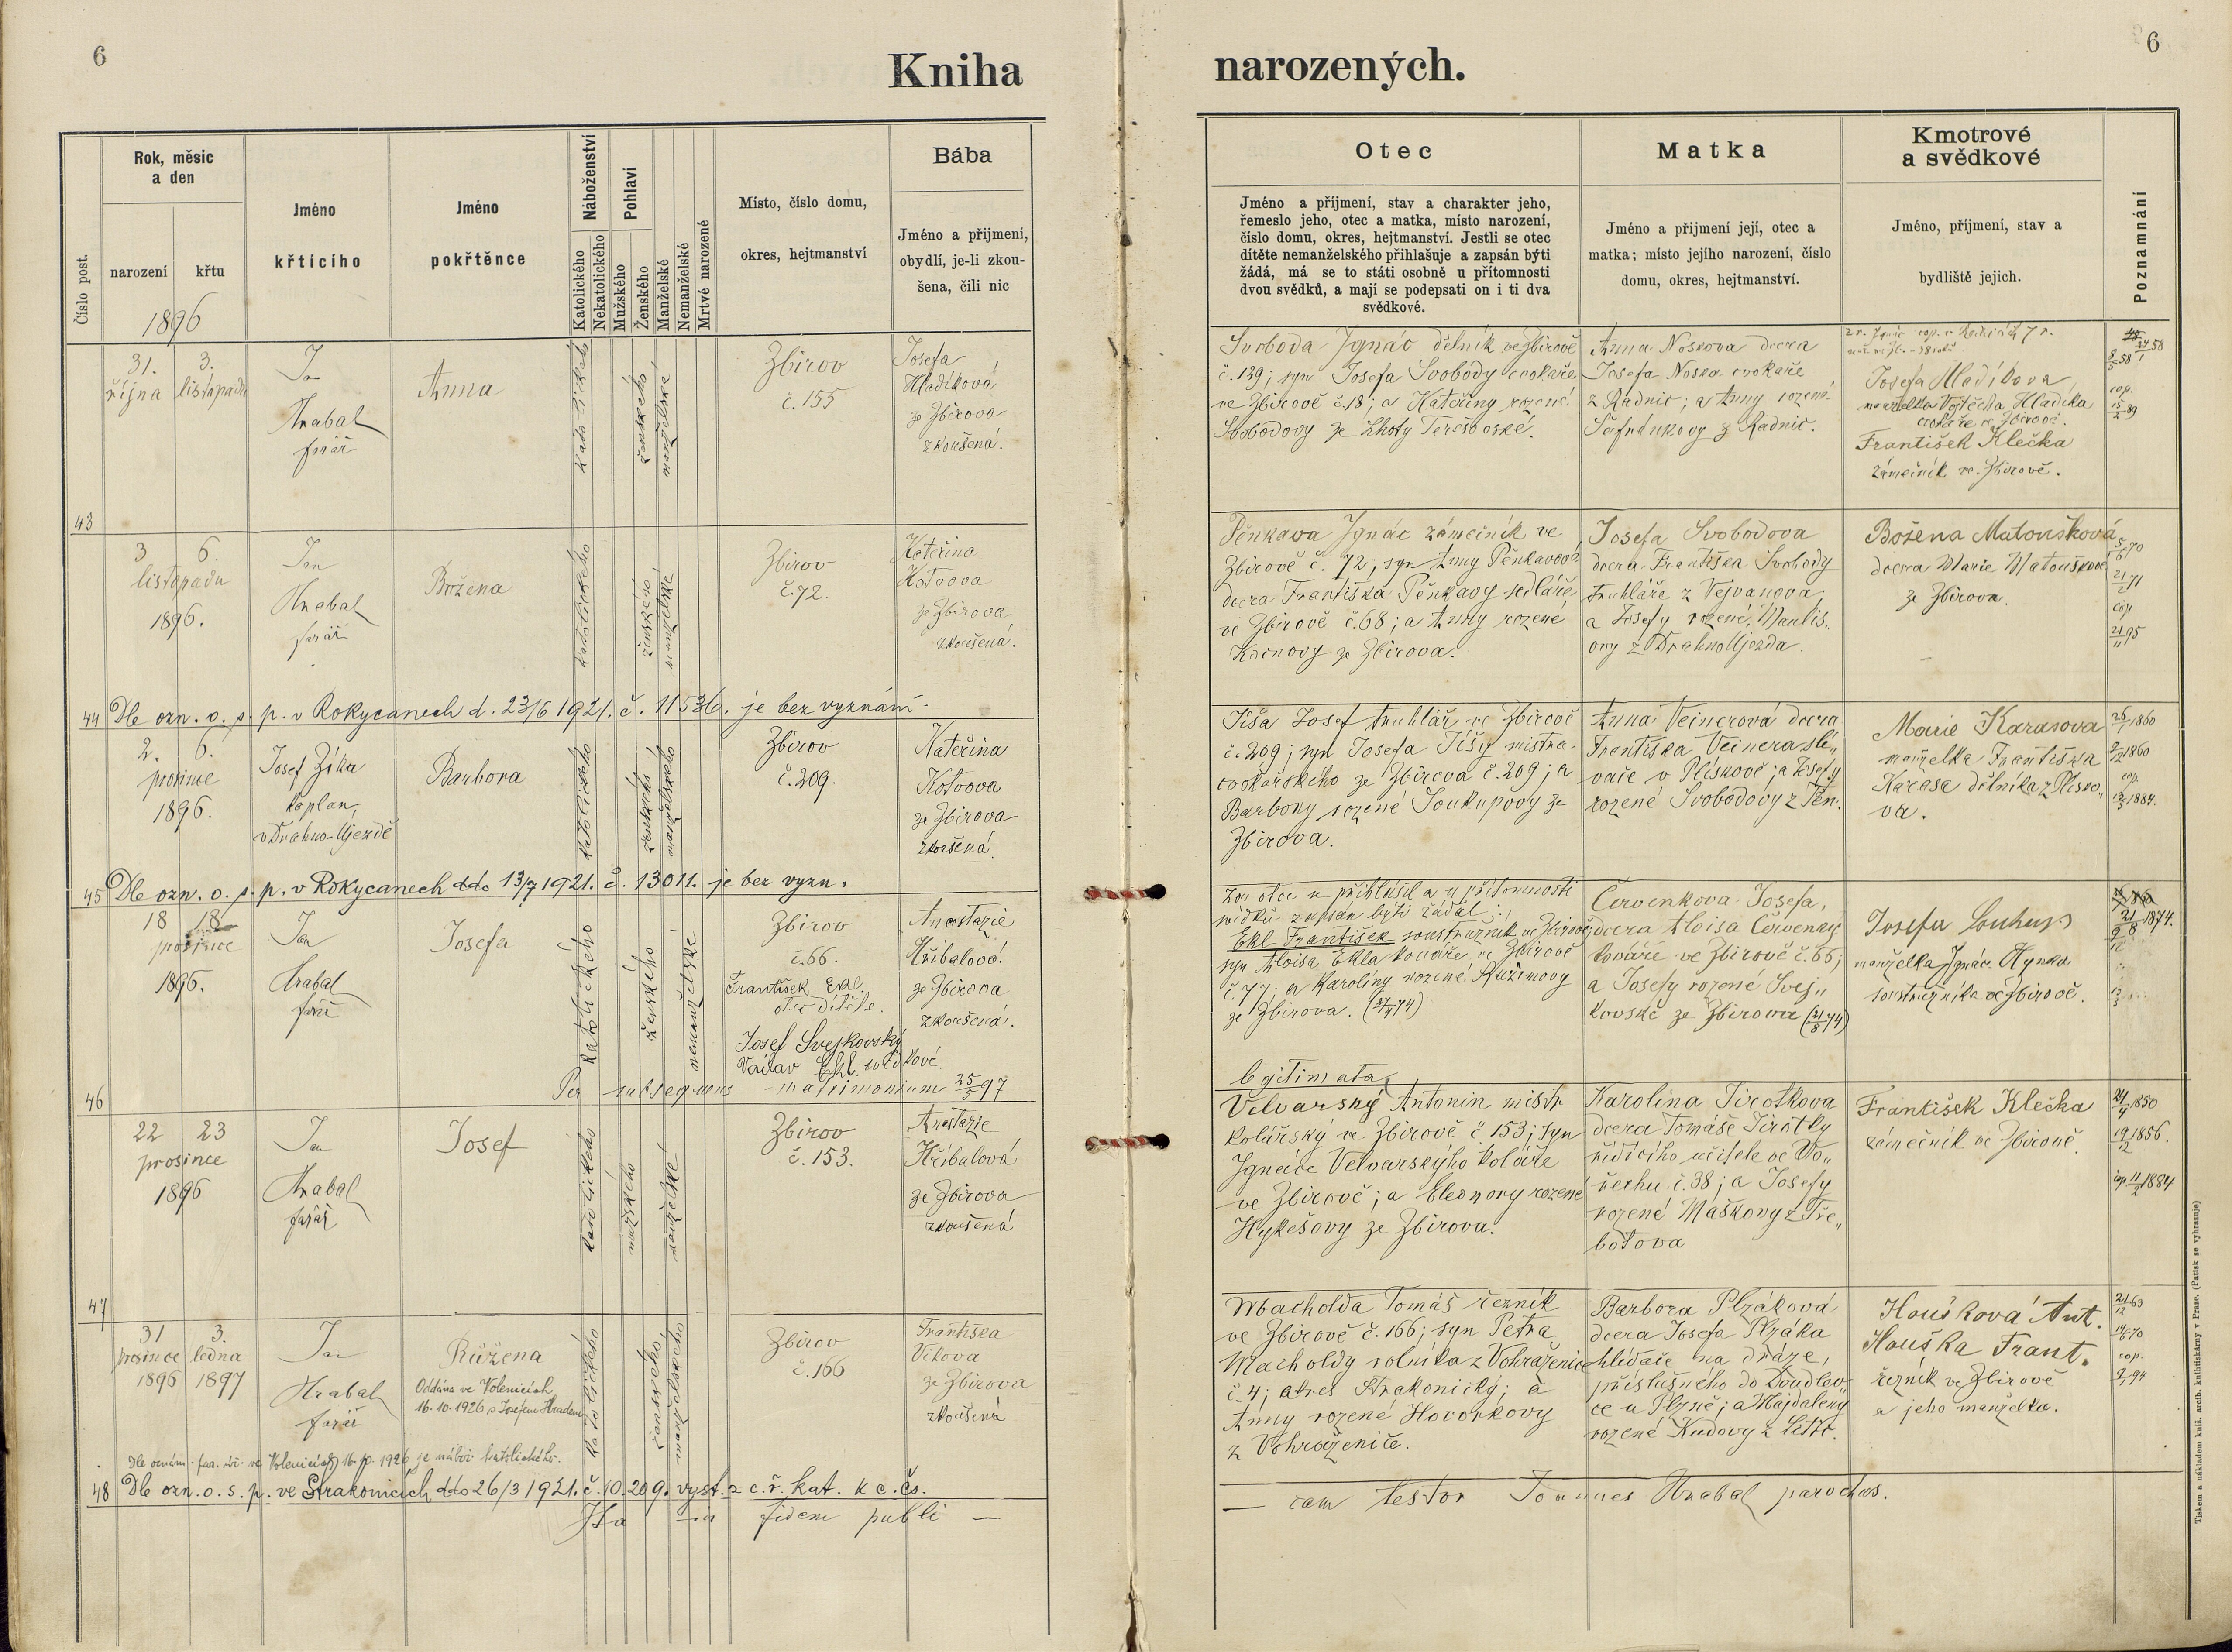 6
Kniha
narozených.
6
Číslo post.
Rok, měsíc
a den
narození
křtu
1896
Jméno
křtícího
Jméno
pokřtěnce
Náboženství
Katolického
Nekatolického
Pohlaví
Mužského
Ženského
Manželské
Nemanželské
Mrtvé narozené
Místo, číslo domu,
okres, hejtmanství
Bába
Jméno a přijmení,
obydlí, je-li zkou-
šena, čili nic
Otec
Jméno a příjmení, stav a charakter jeho,
řemeslo jeho, otec a matka, místo narození,
číslo domu, okres, hejtmanství. Jestli se otec
dítěte nemanželského přihlašuje a zapsán býti
žádá, má se to státi osobně u přítomnosti
dvou svědků, a mají se podepsati on i ti dva
svědkové.
Matka
Jméno a přijmení její, otec a
matka; místo jejího narození, číslo
domu, okres, hejtmanství.
Kmotrové
a svědkové
Jméno, příjmení, stav a
bydliště jejich.
Poznamnání
43
31. října
3. listopadu
Jan
Hrabal
farář
Anna
katolické
ženského
manželské
Zbirov
č. 155
Josefa
Hladíková
ze Zbirova
zkoušená.
Svoboda Ignác dělník ve Zbirově
č. 139; syn Josefa Svobody cvokaře
ve Zbirově č. 18; a Kateřiny rozené
Svobodovy ze Lhoty Terešovské.
Anna Noskova dcera
Josefa Noska cvokaře
z Radnic; a Anny rozené
Šafránkovy z Radnic.
Josefa Hladíkova
manželka Vojtěcha Hladíka
cvokaře ve Zbirově.
František Klečka
zámečník ve Zbirově.
44
3 6.
listopadu
1896.
Jan
Hrabal
farář
Božena
katolického
ženského
manželské
Zbirov
č. 72.
Kateřina
Kotvova
ze Zbirova
zkoušená.
Pěnkava Ignác zámečník ve
Zbirově č. 72; syn Anny Pěnkavové
dcera Františka Pěnkavy sedláře
ve Zbirově č. 68; a Anny rozené
ze Zbirova.
Josefa Svobodova
dcera Františka Svobody
truhláře z Vejvanova,
a Josefy rozené
z Drahno Újezda.
Božena Matoušková
dcera Marie Matouškové
ze Zbirova.
Dle ozn. o. s. p. v Rokycanech d. 23/6 1921. č. 11536. je bez vyznání.
45
2. 6.
prosince
1896.
Josef Zíka
kaplan
v Drahno-Újezdě
Barbora
katolického
ženského
manželského
Zbirov
č. 209.
Kateřina
Kotvova
ze Zbirova
zkoušená.
Tíša Josef truhlář ve Zbirově
č. 209; syn Josefa Tíšy mistra
cvokařského ze Zbirova č. 209; a
Barbory rozené Soukupovy ze
Zbirova.
Anna Veinerová dcera
Františka Veinera slé„
vače v Plískově; a Josefy
rozené Svobodovy z Těn.
Marie Karasova
manželka Františka
Karasa dělníka z Plísko„
va.
26/1 1860
cop.
1884.
Dle ozn. o. s. p. v Rokycanech ddo 13/7 1921. č. 13011. je bez vyzn.
46
18 18
prosince
1896.
Jan
Hrabal
farář
Josefa
katolického
ženského
nemanželské
Zbirov
č. 66.
František Ekl.
otec dítěte.
Josef Svejkovský
Václav Ekl. svědkové.
Anastazie
Hříbalová
ze Zbirova
zkoušená.
Za otce se přihlásil a u přítomnosti
svědků zapsán býti žádal:
Ekl František soustružník ve Zbirově,
syn Aloisa Ekla kováře ve Zbirově
č. 77; a Karoliny rozené Růžkovy
ze Zbirova.
Červenkova Josefa,
dcera Aloisa Červenky
kováře ve Zbirově č. 66;
a Josefy rozené Svej„
kovské ze Zbirova
Josefa
manželka Ignáce Hynka
soustružníka ve Zbirově.
Per subsequens matrimonium 25/5 97
legitimata.
47
22 23
prosince
1896
Jan
Hrabal
farář
Josef
katolického
mužského
manželské
Zbirov
č. 153.
Anastazie
Hříbalová
ze Zbirova
zkoušená
Velvarský Antonín mistr
kolářský ve Zbirově č. 153; syn
Ignáce Velvarského koláře
ve Zbirově; a Eleonory rozené
Hykešovy ze Zbirova.
Karolina Jirotkova
dcera Tomáše Jirotky
řídícího učitele ve Vo„
řechu č. 38; a Josefy
rozené Maškovy z Tře„
botova
František Klečka
zámečník ve Zbirově.
24/4 1850
19/12 1856.
cop. 11/2 1884
48
31 prosince 1896
3. ledna 1897
Jan
Hrabal
farář
Růžena
Oddána ve Volenicích
16.10.1926 s Josefem Hradem
katolického
ženského
manželského
Zbirov
č. 166
Františka
Vítova
ze Zbirova
zkoušená
Macholda Tomáš řezník
ve Zbirově č. 166; syn Petra
Macholdy rolníka z Vohraženic
č. 4; okres Strakonický; a
Anny rozené Hovorkovy
z Vohraženic.
Barbora Plzáková
dcera Josefa Plzáka
hlídače na dráze,
příslušného do Doudlev„
ce u Plzně; a Majdaleny
rozené Kudovy z Litic.
Houšková Ant.
Houška Frant.
řezník ve Zbirově
a jeho manželka.
Dle oznám. far. úř. ve Volenicích 16.10.1926 je nábož. katolického.
Dle ozn. o. s. p. ve Strakonicích ddo 26/3 1921. č. 10.209. vyst. z c. ř. kat. k c. čs.
Ita in fidem publi —
— cam testor Joannes Hrabal parochus.
Tiskem a nákladem kníž. arcib. knihtiskárny v Praze. (Patisk se vyhrazuje)